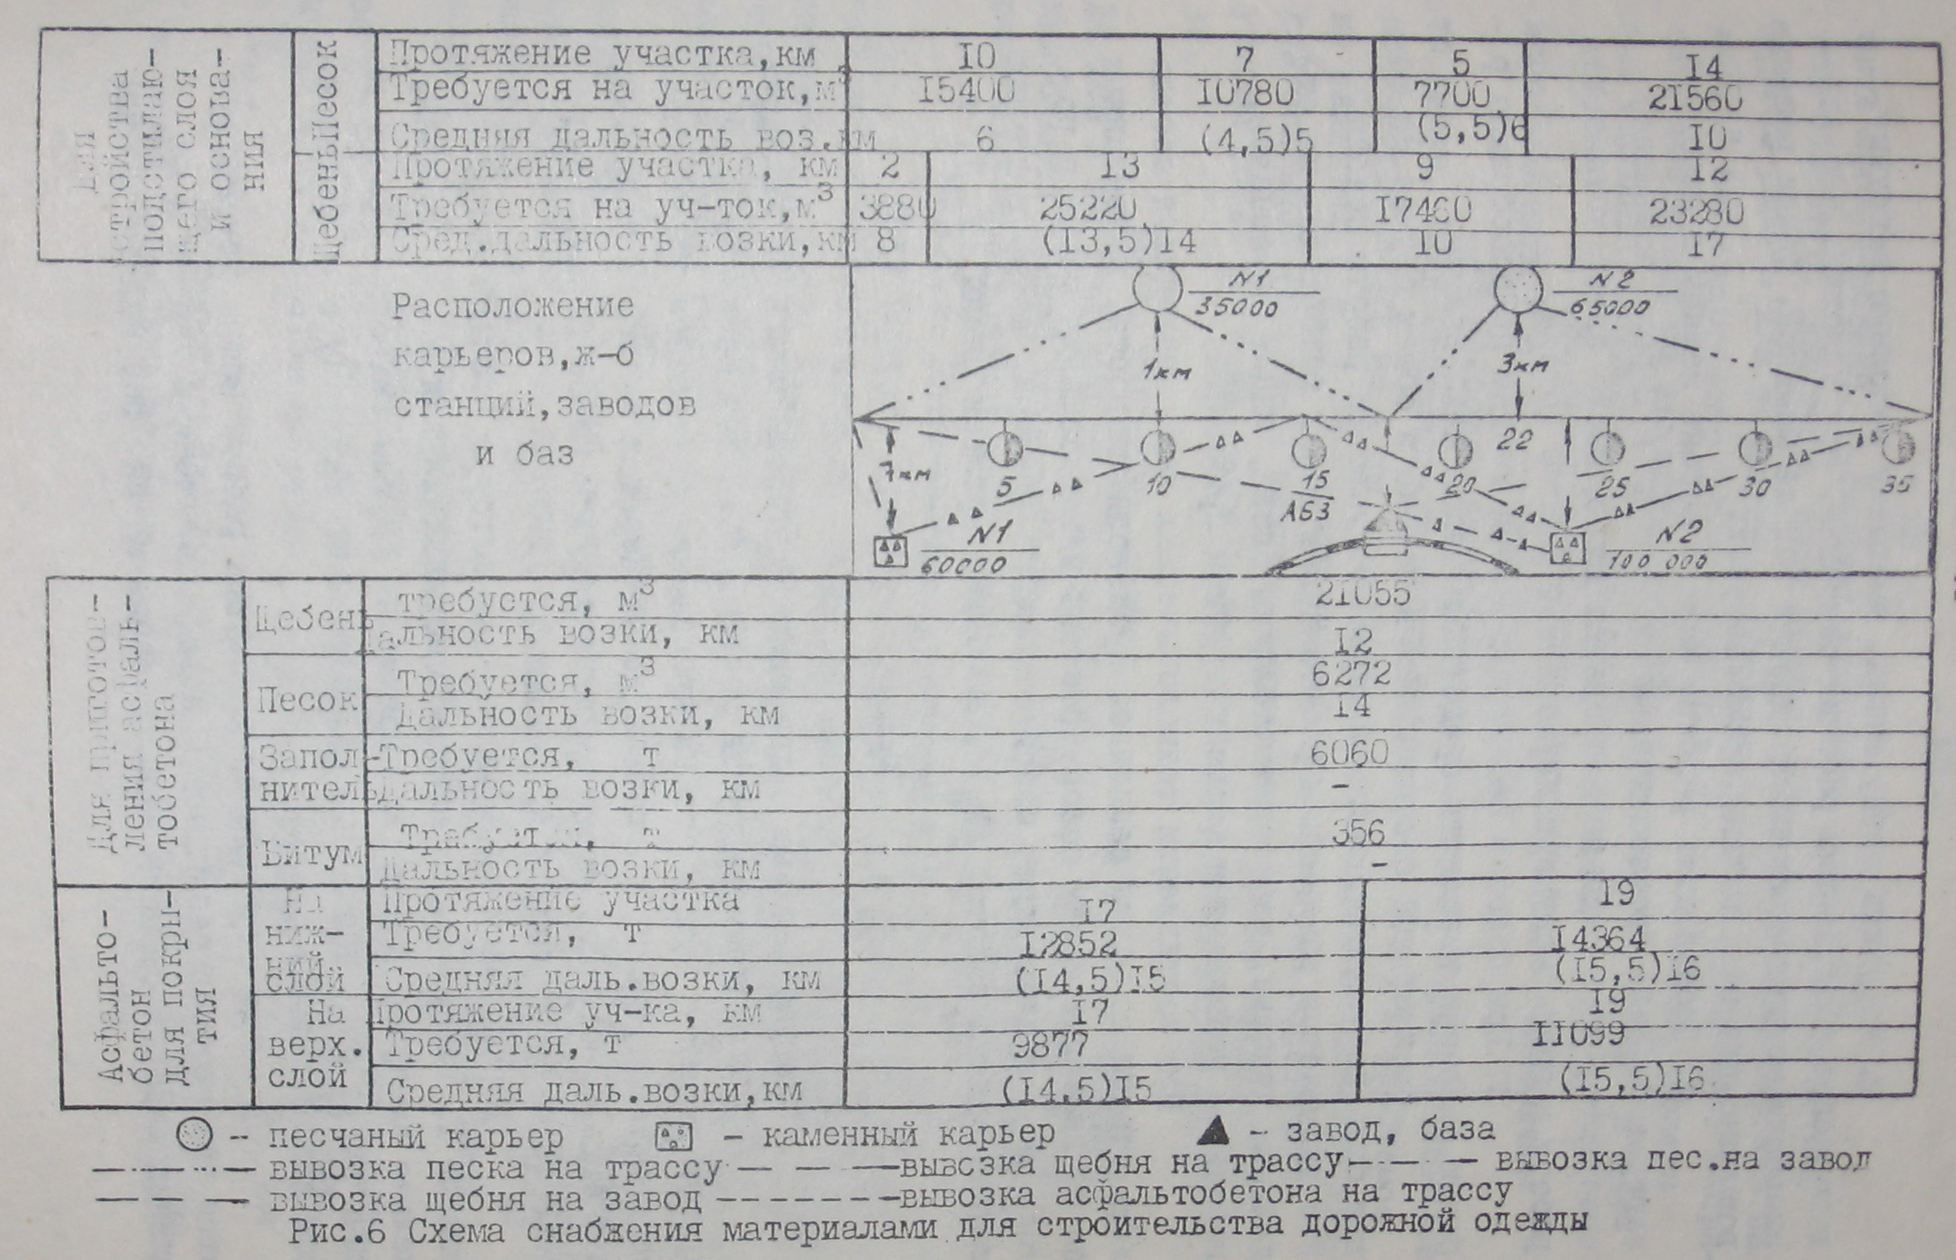 Для устройства подстилающего слоя и основания
Песок
Протяжение участка, км 10 7 5 14
Требуется на участок, м3 15400 10780 7700 21560
Средняя дальность воз. км 6 (4,5)5 (5,5)6 10
Щебень
Протяжение участка, км 2 13 9 12
Требуется на уч-ток, м3 3880 25220 17460 23280
Сред. дальность возки, км 8 (13,5)14 10 17
Расположение
карьеров, ж-б
станций, заводов
и баз
N1
35000
N2
65000
1км
3км
7км
5 10 15 20 22 25 30 35
АБЗ
N1
60000
N2
100 000
Для приготовления асфальтобетона
Щебень
требуется, м3 21055
Дальность возки, км 12
Песок
Требуется, м3 6272
Дальность возки, км 14
Заполнитель
Требуется, т 6060
Дальность возки, км -
Битум
Требуется, т 356
Дальность возки, км -
Асфальто-
бетон
для покры-
тия
На
ниж-
ний
слой
Протяжение участка 17 19
Требуется, т 12852 14364
Средняя даль. возки, км (14,5)15 (15,5)16
На
верх.
слой
Протяжение уч-ка, км 17 19
Требуется, т 9877 11099
Средняя даль. возки, км (14,5)15 (15,5)16
- песчаный карьер - каменный карьер - завод, база
вывозка песка на трассу вывозка щебня на трассу вывозка пес. на завод
вывозка щебня на завод вывозка асфальтобетона на трассу
Рис.6 Схема снабжения материалами для строительства дорожной одежды